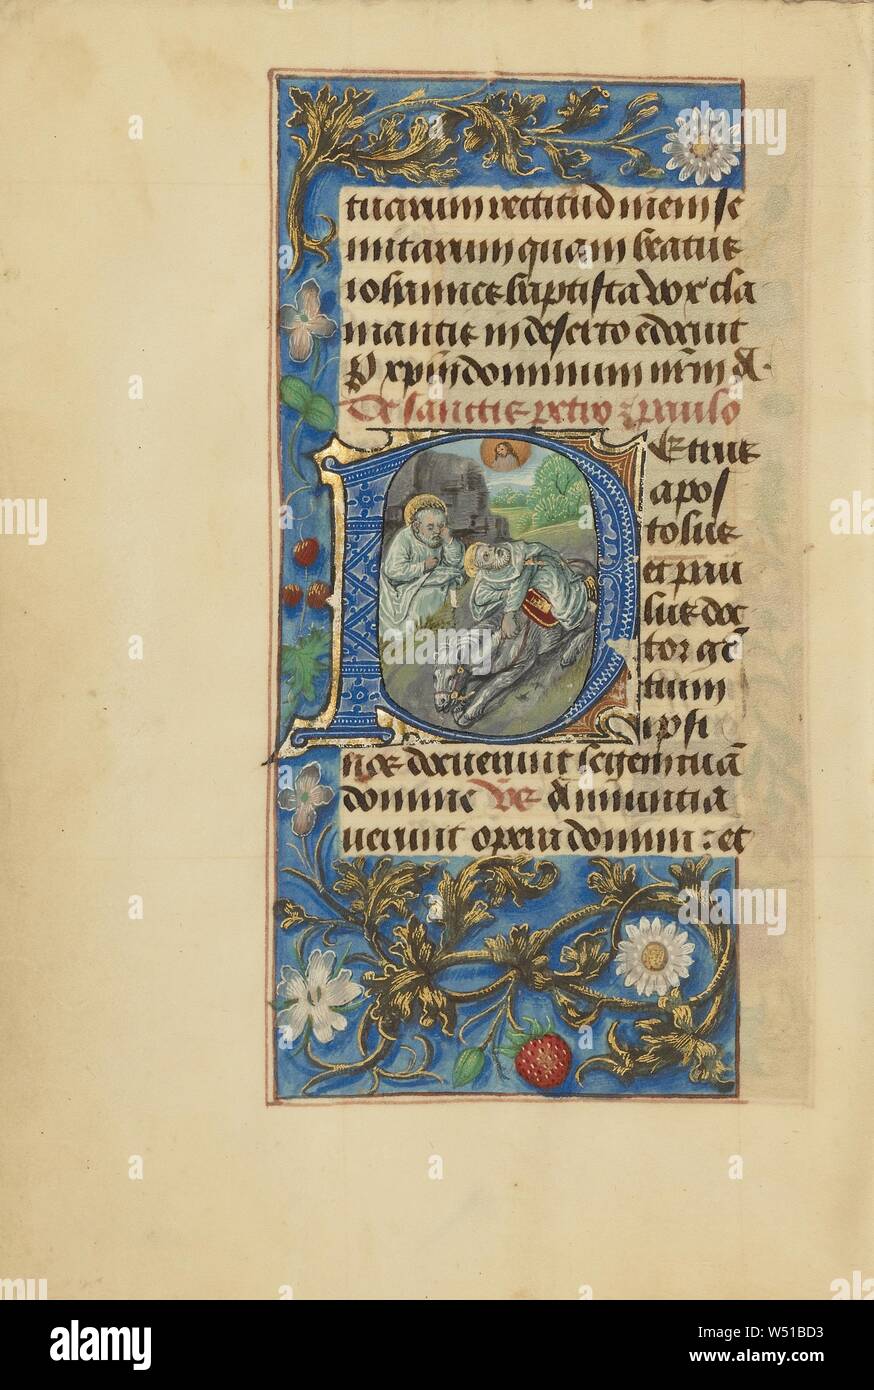 tuarum rectitud mem se
mitarum quam beatus
iohannes baptista vox cla
mantis in deserto edocuit
P xpm dominum nrm A.
De sanctis petro z paulo
Petrus
apos
tolus
et pau
lus doc
tor ge
tium
ipsi
nos docuerunt legem tuā
domine Vs Annuntia
uerunt opera domini : et
alamy
a
www.alamy.com
Image ID: W51BD3